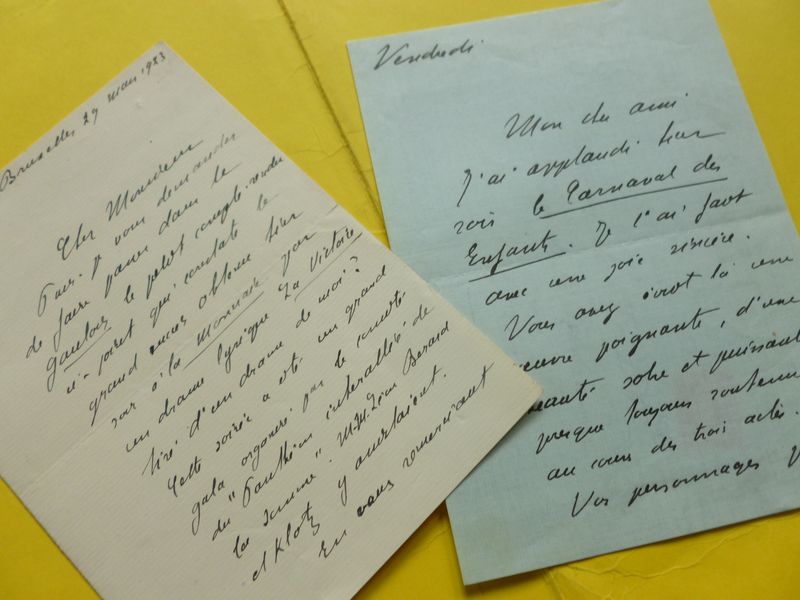 Bruxelles, 27 mars 1923
Cher Monsieur
Puis-je vous demander
de faire passer dans le
Gaulois le petit compte-rendu
ci-joint qui constate le
grand succès obtenu hier
soir à la Monnaie par
un drame lyrique La Victoire
tiré d'un drame de moi ?
Cette soirée a été un grand
gala organisé par le comité
du "Panthéon interallié de
la Somme". M.M. Léon Berard
et Klotz y assistaient.
En vous remerciant
Vendredi
Mon cher ami
J'ai applaudi hier
soir le Carnaval des
Enfants. Je l'ai fait
avec une joie sincère.
Vous avez écrit là une
œuvre poignante, d'une
beauté sobre et puissante
presque toujours soutenue
au cours des trois actes.
Vos personnages